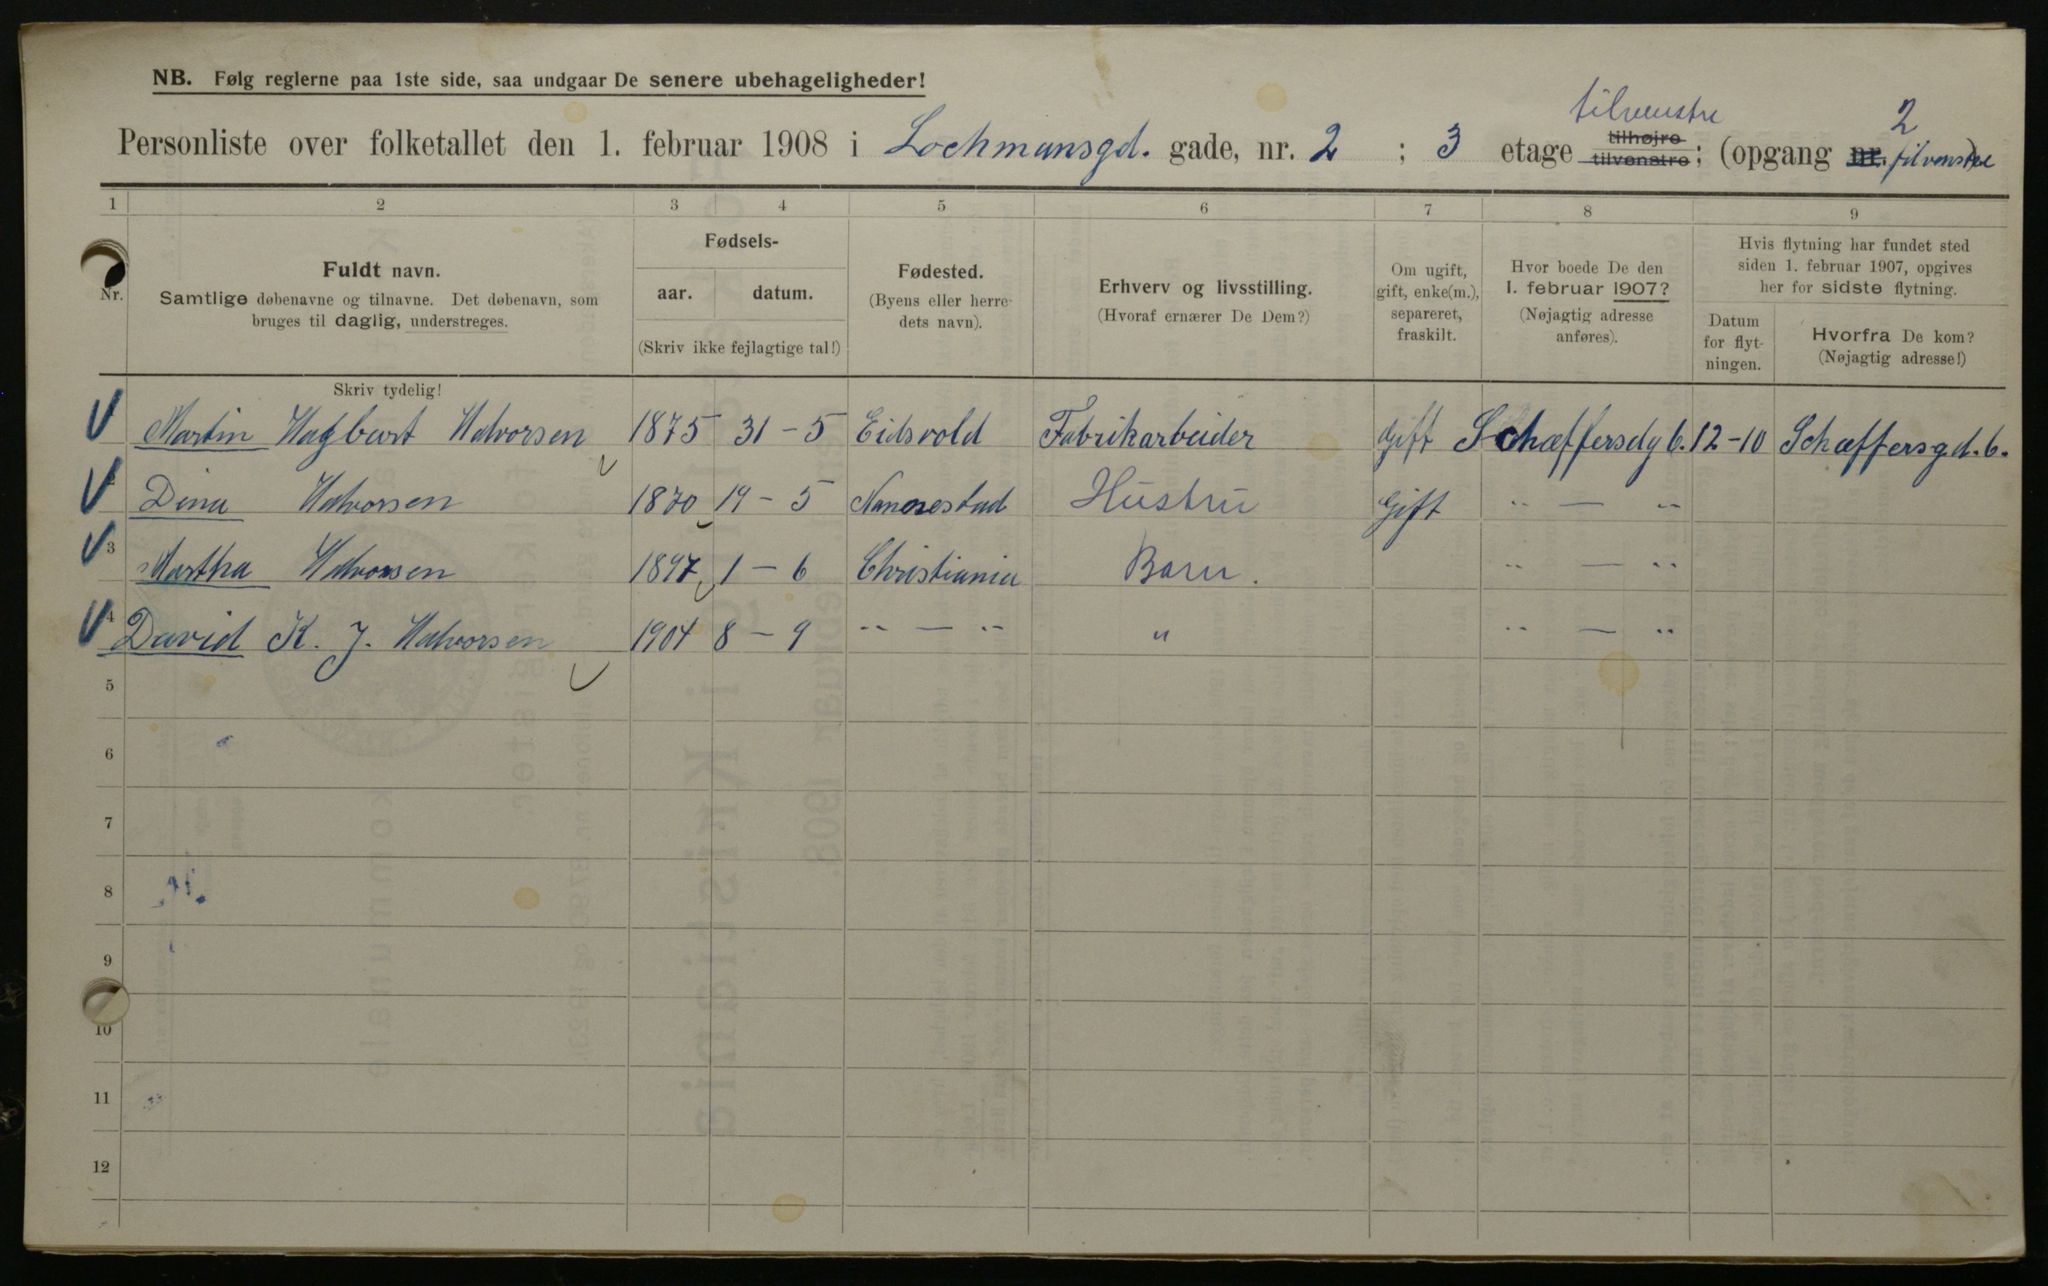 NB. Følg reglerne paa 1ste side, saa undgaar De senere ubehageligheder!
tilvenstre 2
Personliste over folketallet den 1. februar 1908 i Lochmansgd. gade, nr. 2 ; 3 etage tilhøjre tilvenstre; (opgang nr. tilvenstre)
1 2 3 4 5 6 7 8 9
Nr.
Fuldt navn.
Samtlige døbenavne og tilnavne. Det døbenavn, som
bruges til daglig, understreges.
Skriv tydelig!
Fødsels-
aar. datum.
(Skriv ikke fejlagtige tal!)
Fødested.
(Byens eller herre-
dets navn).
Erhverv og livsstilling.
(Hvoraf ernærer De Dem?)
Om ugift,
gift, enke(m.),
separeret,
fraskilt.
Hvor boede De den
1. februar 1907?
(Nøjagtig adresse
anføres).
Hvis flytning har fundet sted
siden 1. februar 1907, opgives
her for sidste flytning.
Datum
for flyt-
ningen.
Hvorfra De kom?
(Nøjagtig adresse!)
Martin Hagbart Halvorsen 1875 31-5 Eidsvold Fabrikarbeider Gift Schæffersdg 6. 12-10 Schæffersgd. 6.
2 Dina Halvorsen 1870 19-5 Nannestad Hustru Gift " — "
3 Martha Halvorsen 1897 1-6 Christiania Barn. " — "
4 David K. J. Halvorsen 1904 8-9 " — " " " — "
5
6
7
8
9
10
11
12